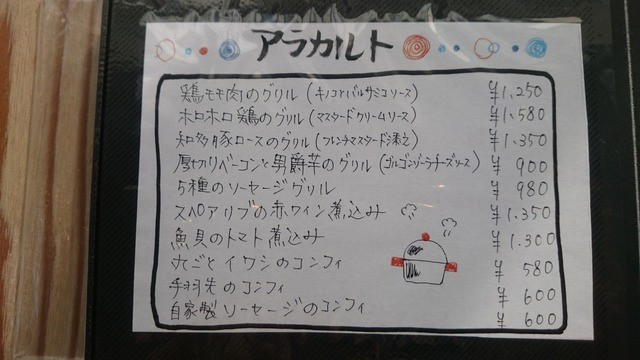 アラカルト
鶏モモ肉のグリル(キノコとバルサミコソース) ¥1.250
ホロホロ鶏のグリル(マスタードクリームソース) ¥1.580
知多豚ロースのグリル(フレンチマスタード添え) ¥1.350
厚切りベーコンと男爵芋のグリル(ゴルゴンゾーラチーズソース) ¥900
5種のソーセージグリル ¥980
スペアリブの赤ワイン煮込み ¥1.350
魚貝のトマト煮込み ¥1.300
丸ごとイワシのコンフィ ¥580
手羽先のコンフィ ¥600
自家製ソーセージのコンフィ ¥600